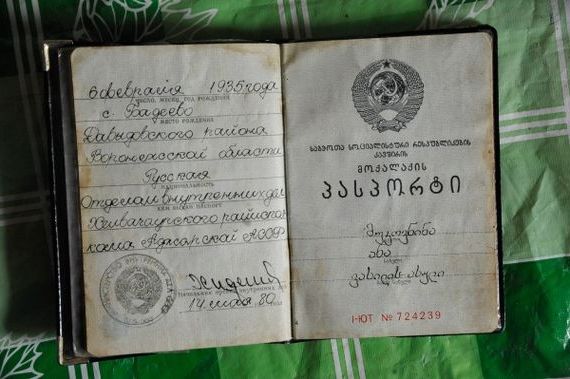 6 февраля 1935 года
ЧИСЛО, МЕСЯЦ, ГОД РОЖДЕНИЯ
с. Бадеево
МЕСТО РОЖДЕНИЯ
Давыдовского района
Воронежской области
Русская
НАЦИОНАЛЬНОСТЬ
Отделом внутренних дел
КЕМ ВЫДАН ПАСПОРТ
Хелвачаурского райиспол
кома Аджарской АССР
14 мая 80 года
საბჭოთა სოციალისტური რესპუბლიკების
კავშირის
მოქალაქის
პასპორტი
ანა
სახელი
ვასილის ასული
I-ЮТ № 724239